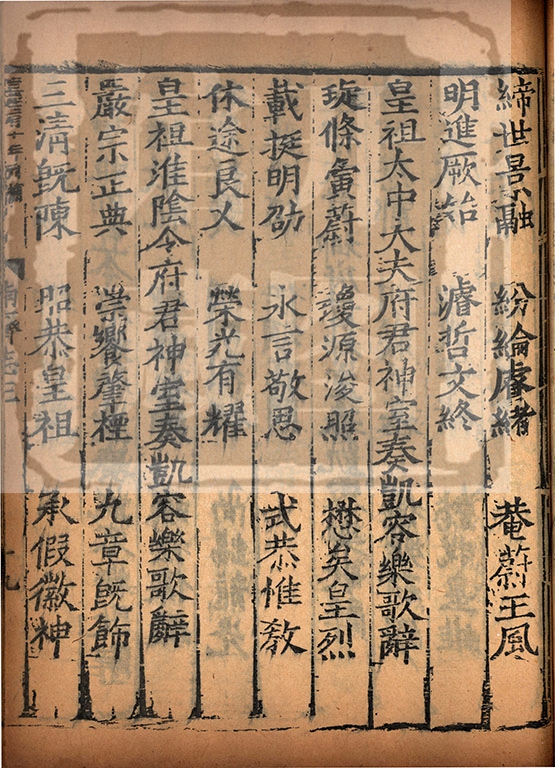 締世景融 紛綸睿緒 菴蔚王風
明進厥始 濬哲文終
皇祖太中大夫府君神室奏凱容樂歌辭
琁條夤蔚 瓊源浚照 懋矣皇烈
載挺明劭 永言敬思 武恭惟敎
休途良乂 榮光有耀
皇祖淮陰令府君神室奏凱容樂歌辭
嚴宗正典 崇饗肇禋 九章旣飾
三淸旣陳 昭恭皇祖 承假徽神
南齊志三 十九